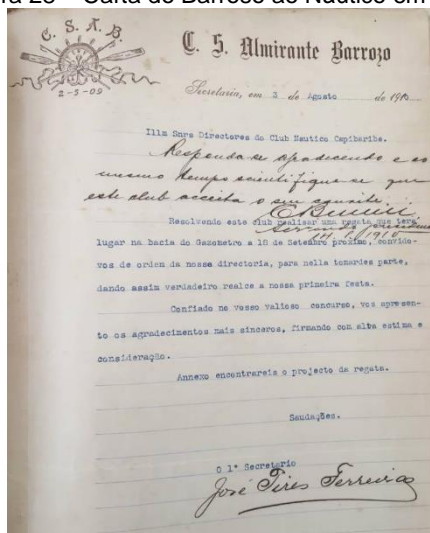 Carta do Barroso ao Náutico em
C. S. A. B.
2-5-09
C. S. Almirante Barrozo
Secretaria, em 3 de Agosto de 1910
Illm Snrs Directores do Club Nautico Capibaribe.
Responda-se agradecendo e ao
mesmo tempo scientifique-se que
este club acceita o seu convite.
Resolvendo este club realisar uma regata que terá
14.8.1910
lugar na bacia do Gazometro a 18 de Setembro proximo, convido-
vos de ordem da nossa directoria, para nella tomardes parte,
dando assim verdadeiro realce a nossa primeira festa.
Confiado no vosso valioso concurso, vos apresen-
to os agradecimentos mais sinceros, firmando com alta estima e
consideração.
Annexo encontrareis o projecto da regata.
Saudações.
O 1º Secretario
José Pires Ferreira